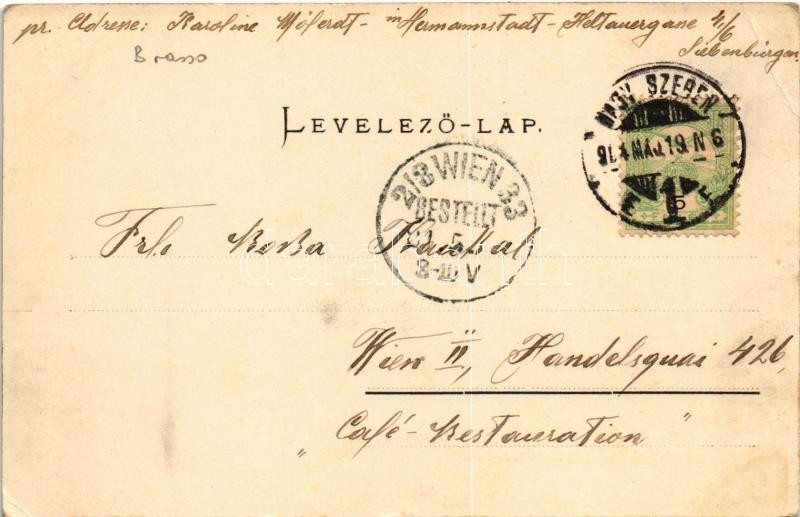 pr. Adresse: Karoline Möferdt - in Hermannstadt - Heltauergasse
Siebenbürgen
Brasso
LEVELEZŐ-LAP.
NAGY SZEBEN
914 MÁJ. 19. N 6
1
5
2/8 WIEN 33
BESTELLT
21. 5
8-III V
Frl. Rosa
Wien II, Handelsquai 426,
"Café-Restauration"
darabanth